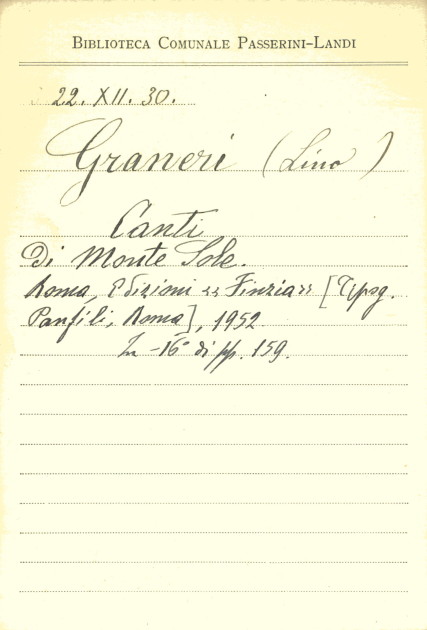 BIBLIOTECA COMUNALE PASSERINI-LANDI
22. XII. 30.
Graneri (Lino)
Canti
Di Monte Sole.
Roma, Edizioni «Finzia» [Tipog.
Panfili, Roma], 1952
In-16° di pp. 159.